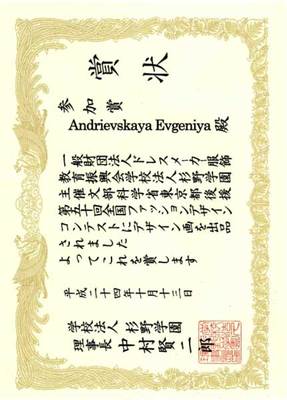 賞状
参加賞
Andrievskaya Evgeniya 殿
一般財団法人ドレスメーカー服飾
教育振興会学校法人杉野学園
主催文部科学省東京都後援
第五十回全国ファッションデザイン
コンテストにデザイン画を出品
されました
よってこれを賞します
平成二十四年十月十三日
学校法人 杉野学園
理事長 中村賢二郎